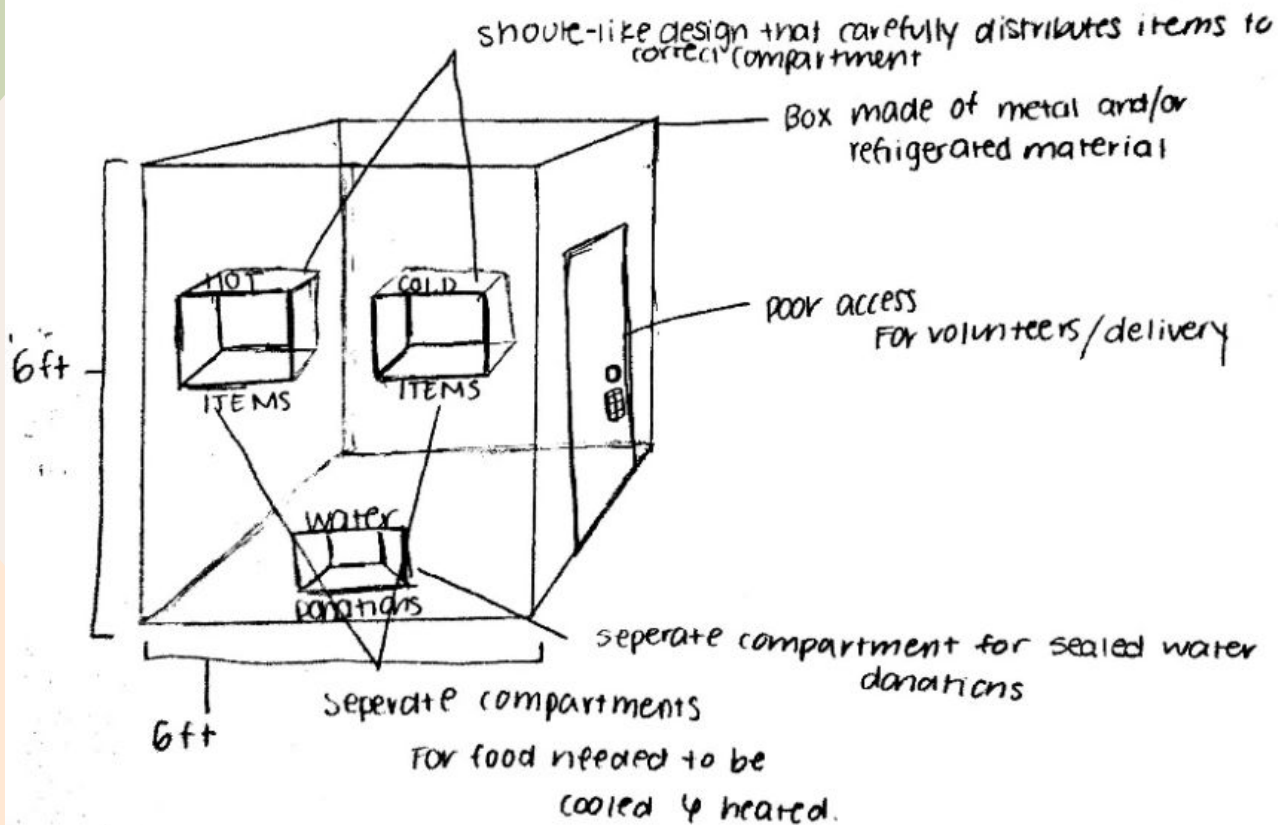 shoute-like design that carefully distributes items to
correct compartment
Box made of metal and/or
refrigerated material
HOT
ITEMS
COLD
ITEMS
Door access
For volunteers/delivery
6ft
water
Donations
seperate compartment for sealed water
donations
6ft
seperate compartments
For food needed to be
cooled & heated.